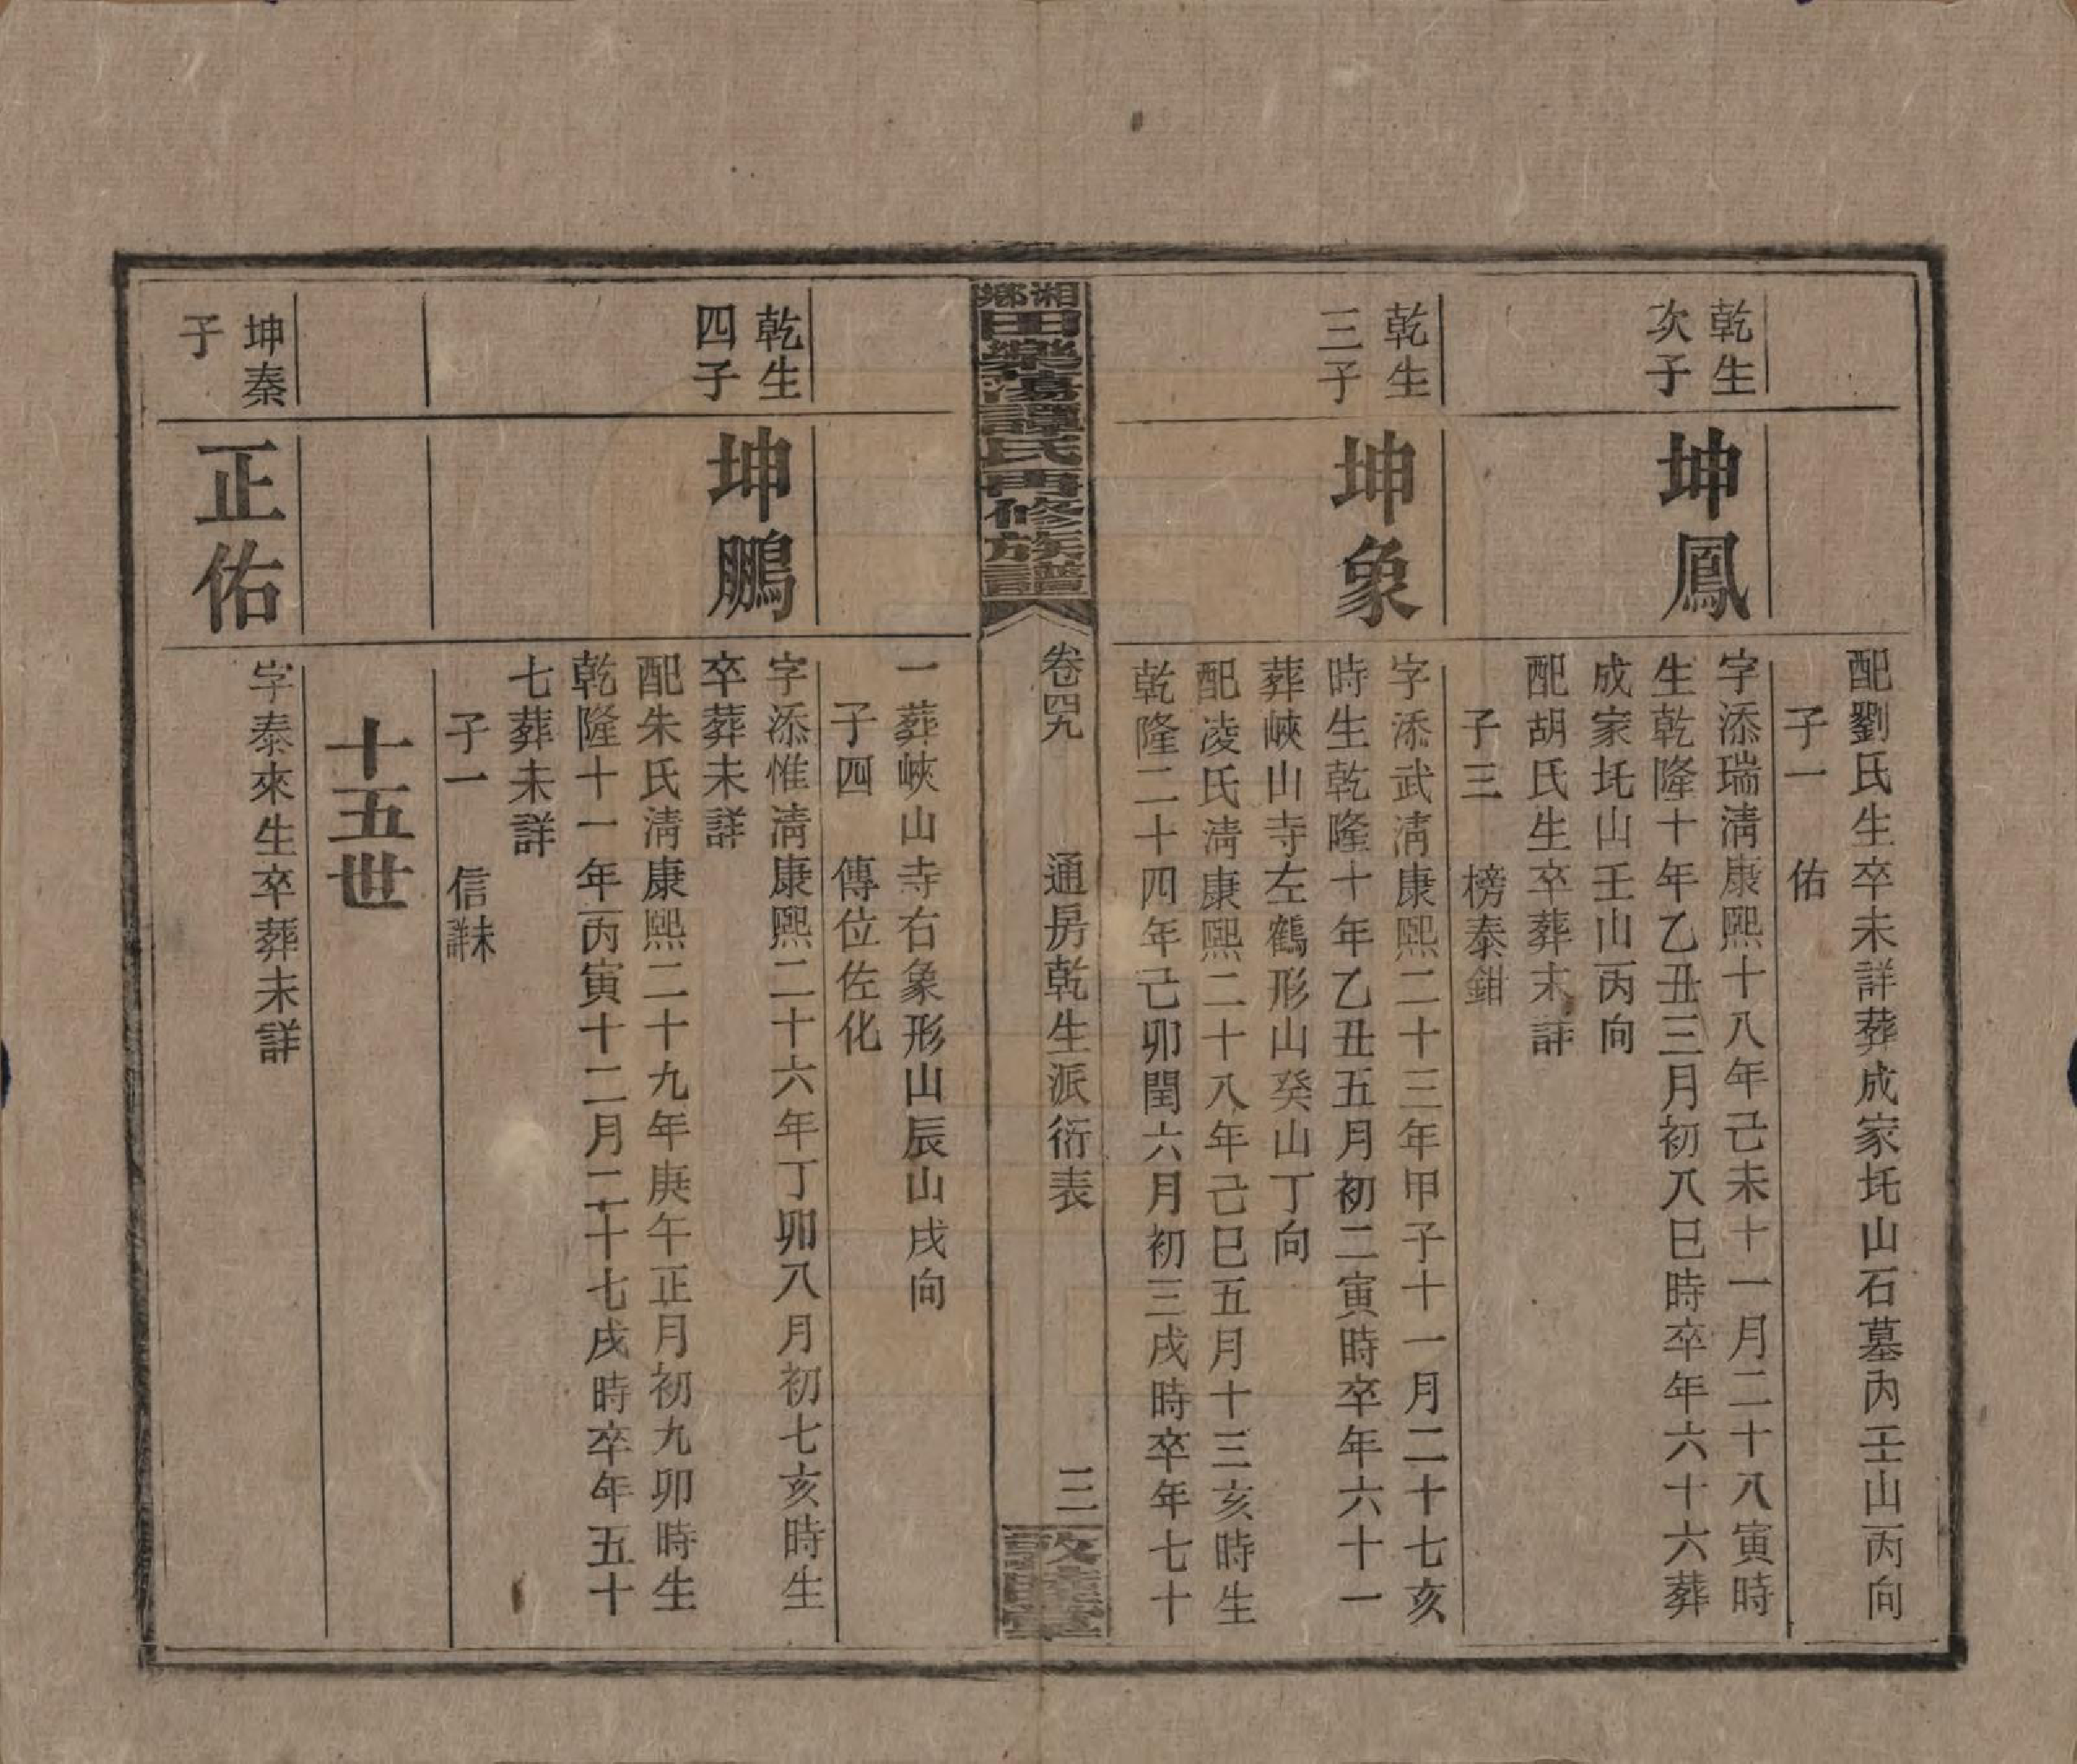 配劉氏生卒未詳葬成家圫山石墓內壬山丙向
子一　佑
乾生
次子
坤鳳
字添瑞淸康熙十八年己未十一月二十八寅時
生乾隆十年乙丑三月初八巳時卒年六十六葬
成家圫山壬山丙向
配胡氏生卒葬未詳
子三　榜泰鉗
乾生
三子
坤象
字添武淸康熙二十三年甲子十一月二十七亥
時生乾隆十年乙丑五月初二寅時卒年六十一
葬峽山寺左鶴形山癸山丁向
配凌氏淸康熙二十八年己巳五月十三亥時生
乾隆二十四年己卯閏六月初三戌時卒年七十
湘鄉田樂蕩譚氏再修族譜
卷四九　通房乾生派衍表　三
敦睦堂
一葬峽山寺右象形山辰山戌向
子四　傳位佐化
乾生
四子
坤鵬
字添惟淸康熙二十六年丁卯八月初七亥時生
卒葬未詳
配朱氏淸康熙二十九年庚午正月初九卯時生
乾隆十一年丙寅十二月二十七戌時卒年五十
七葬未詳
子一　信未詳
十五世
坤秦
子
正佑
字泰來生卒葬未詳